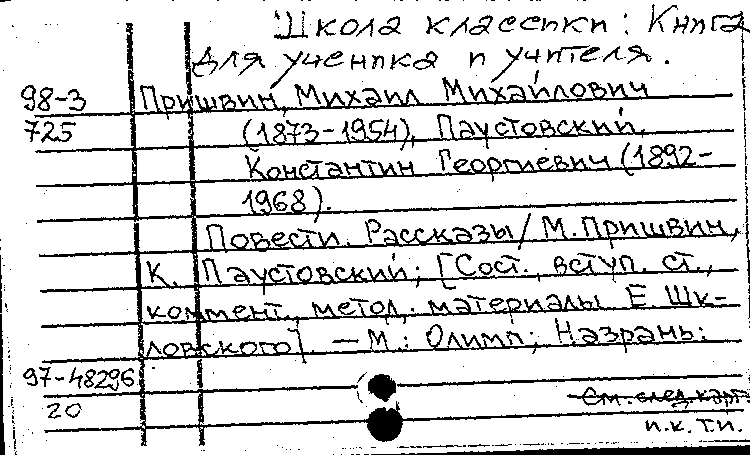 Школа классики: Книга
для ученика и учителя.
98-3 Пришвин, Михаил Михайлович
725 (1873-1954), Паустовский,
Константин Георгиевич (1892-
1968).
Повести. Рассказы / М. Пришвин,
К. Паустовский; [Сост., вступ. ст.,
коммент., метод. материалы Е. Шк-
ловского]. — М.: Олимп; Назрань:
97-48296
См. след. карт.
20 п.к. Т.П.